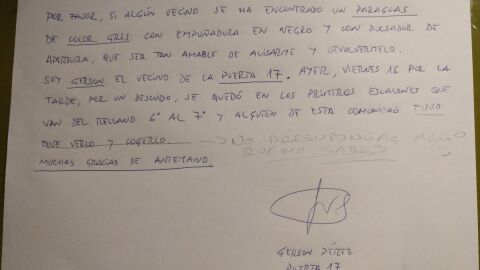 POR FAVOR, SI ALGÚN VECINO SE HA ENCONTRADO UN PARAGUAS
DE COLOR GRIS CON EMPUÑADURA EN NEGRO Y CON PULSADOR DE
APERTURA, QUE SEA TAN AMABLE DE AVISARME Y DEVOLVERMELO.
SOY GERSON EL VECINO DE LA PUERTA 17. AYER, VIERNES 16 POR LA
TARDE, POR UN DESCUIDO, SE QUEDÓ EN LOS PRIMEROS ESCALONES QUE
VAN DEL RELLANO 6º AL 7º Y ALGUIEN DE ESTA COMUNIDAD TUVO
QUE VERLO Y COGERLO. → NO PRESUPONGAS ALGO
QUE NO SABES
MUCHAS GRACIAS DE ANTEMANO.
GERSON PÉREZ
PUERTA 17